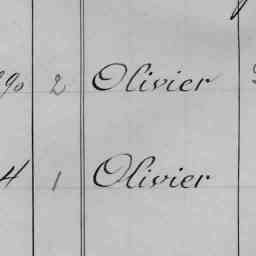 90 2 Olivier
4 1 Olivier